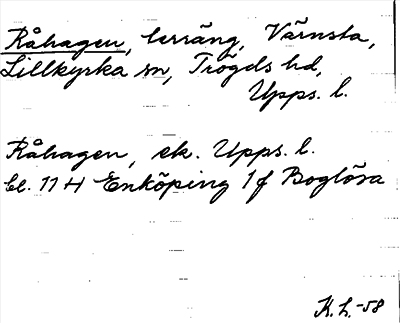 Råhagen, terräng, Värnsta,
Lillkyrka sn, Trögds hd,
Upps. l.
Råhagen, ek. Upps. l.
bl. 11 H Enköping 1 f Boglösa
K.L.-58